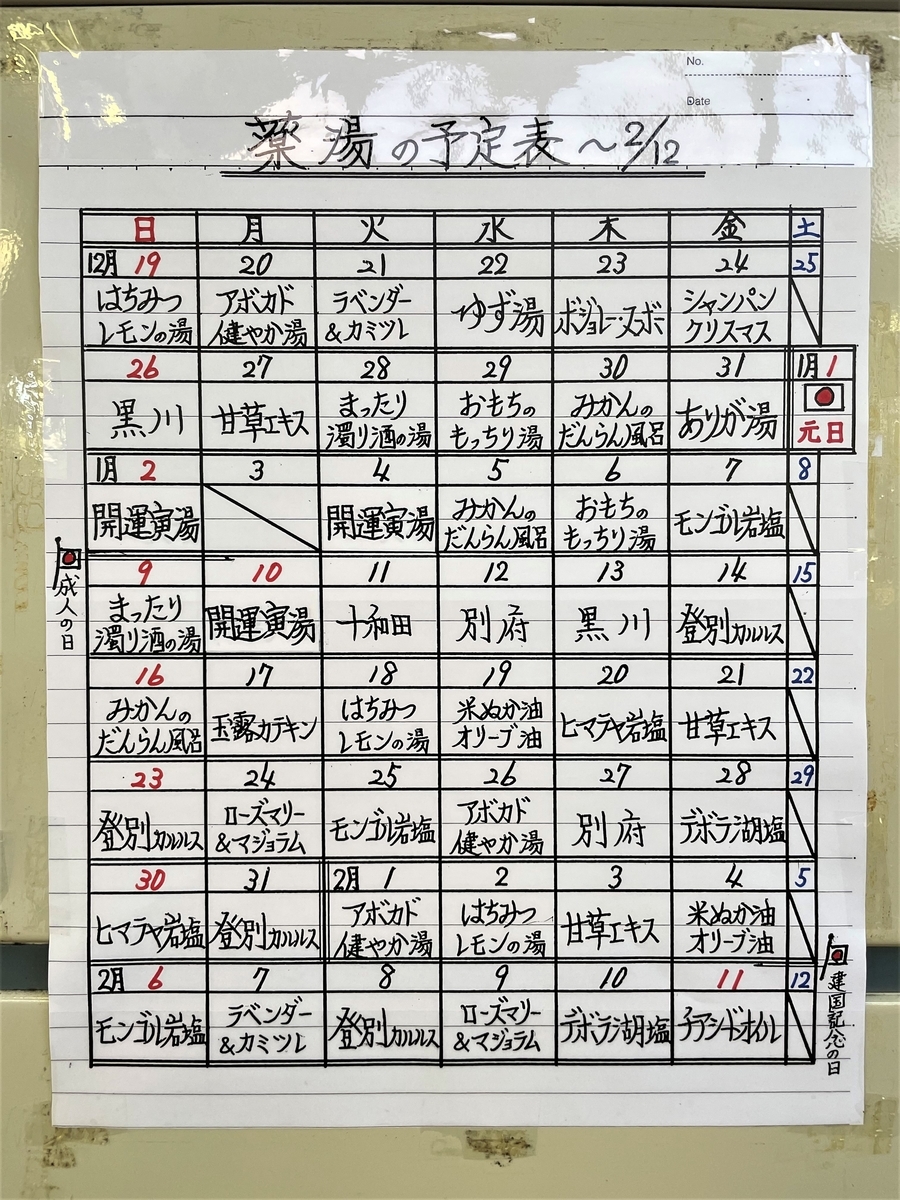 No.
Date
薬湯の予定表～2/12
日 月 火 水 木 金 土
12月 19 20 21 22 23 24 25
はちみつ アボカド ラベンダー ゆず湯 ボジョレー・ヌーボー シャンパン
レモンの湯 健やか湯 &カミツレ クリスマス
26 27 28 29 30 31 1月 1
黒川 甘草エキス まったり おもちの みかんの ありが湯 元日
濁り酒の湯 もっちり湯 だんらん風呂
1月 2 3 4 5 6 7 8
開運寅湯 開運寅湯 みかんの おもちの モンゴル岩塩
だんらん風呂 もっちり湯
成人の日
9 10 11 12 13 14 15
まったり 開運寅湯 十和田 別府 黒川 登別カルルス
濁り酒の湯
16 17 18 19 20 21 22
みかんの 玉露カテキン はちみつ 米ぬか油 ヒマラヤ岩塩 甘草エキス
だんらん風呂 レモンの湯 オリーブ油
23 24 25 26 27 28 29
登別カルルス ローズマリー モンゴル岩塩 アボカド 別府 デボラ湖塩
&マジョラム 健やか湯
30 31 2月 1 2 3 4 5
ヒマラヤ岩塩 登別カルルス アボカド はちみつ 甘草エキス 米ぬか油
健やか湯 レモンの湯 オリーブ油
2月 6 7 8 9 10 11 12
モンゴル岩塩 ラベンダー 登別カルルス ローズマリー デボラ湖塩 チアシードオイル
&カミツレ &マジョラム
建国記念の日